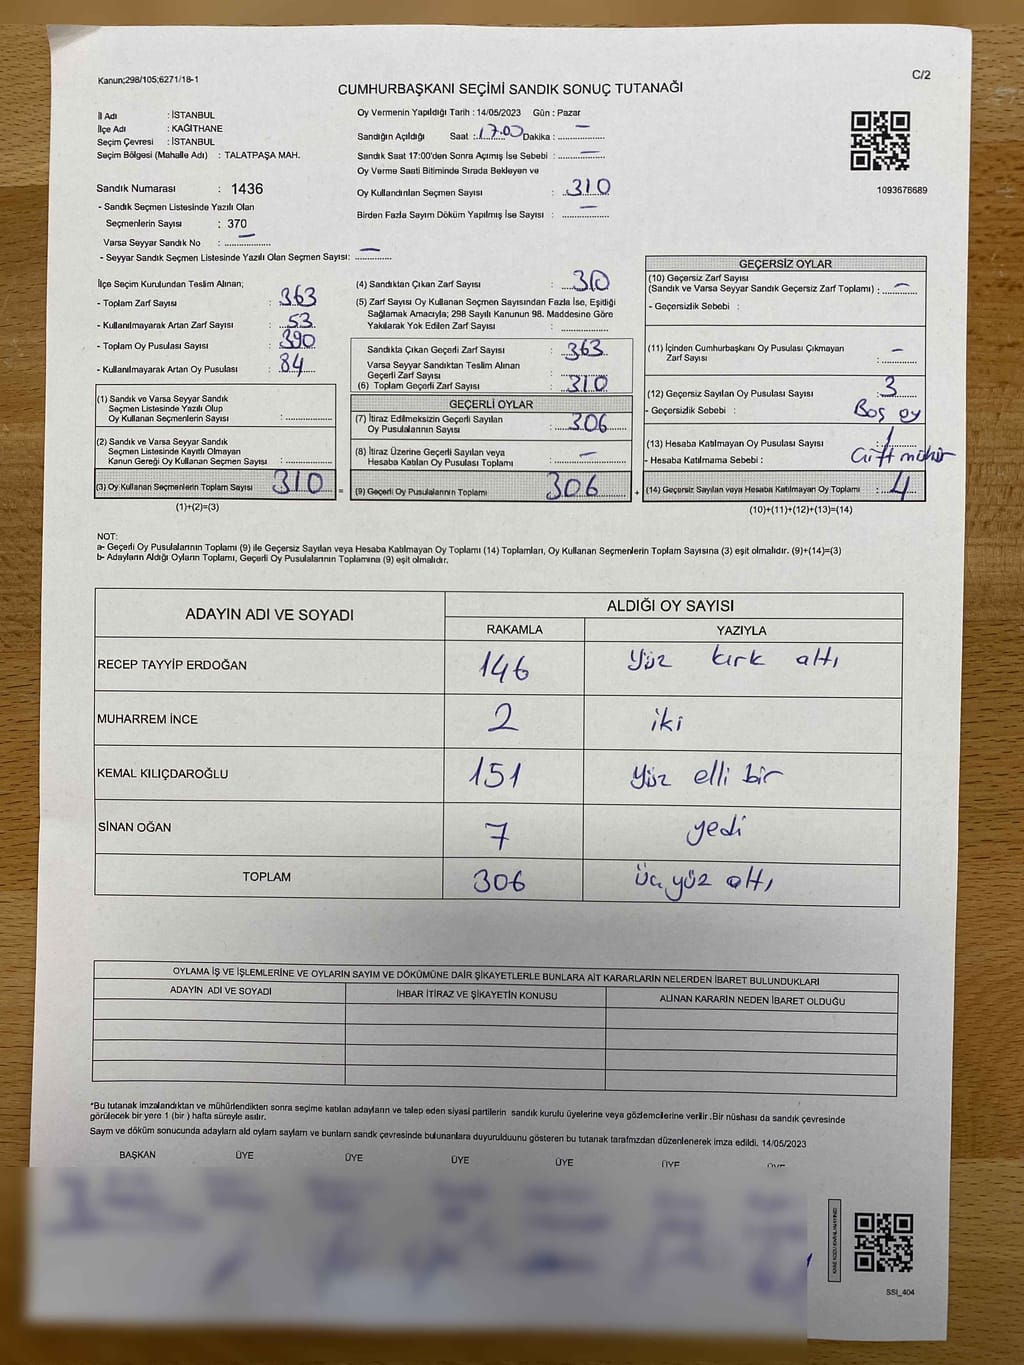 Kanun;298/105;6271/18-1
C/2
CUMHURBAŞKANI SEÇİMİ SANDIK SONUÇ TUTANAĞI
İl Adı : İSTANBUL
İlçe Adı : KAĞITHANE
Seçim Çevresi : İSTANBUL
Seçim Bölgesi (Mahalle Adı) : TALATPAŞA MAH.
Sandık Numarası : 1436
- Sandık Seçmen Listesinde Yazılı Olan
Seçmenlerin Sayısı : 370
Varsa Seyyar Sandık No : —
- Seyyar Sandık Seçmen Listesinde Yazılı Olan Seçmen Sayısı: —
Oy Vermenin Yapıldığı Tarih : 14/05/2023 Gün : Pazar
Sandığın Açıldığı Saat : 17.00 Dakika : —
Sandık Saat 17:00'den Sonra Açımış İse Sebebi : —
Oy Verme Saati Bitiminde Sırada Bekleyen ve
Oy Kullandırılan Seçmen Sayısı : 310
Birden Fazla Sayım Döküm Yapılmış İse Sayısı : —
1093678689
İlçe Seçim Kurulundan Teslim Alınan;
- Toplam Zarf Sayısı : 363
- Kullanılmayarak Artan Zarf Sayısı : 53
- Toplam Oy Pusulası Sayısı : 390
- Kullanılmayarak Artan Oy Pusulası : 84
(1) Sandık ve Varsa Seyyar Sandık
Seçmen Listesinde Yazılı Olup
Oy Kullanan Seçmenlerin Sayısı :
(2) Sandık ve Varsa Seyyar Sandık
Seçmen Listesinde Kayıtlı Olmayan
Kanun Gereği Oy Kullanan Seçmen Sayısı :
(3) Oy Kullanan Seçmenlerin Toplam Sayısı : 310
(1)+(2)=(3)
(4) Sandıktan Çıkan Zarf Sayısı : 310
(5) Zarf Sayısı Oy Kullanan Seçmen Sayısından Fazla İse, Eşitliği
Sağlamak Amacıyla; 298 Sayılı Kanunun 98. Maddesine Göre
Yakılarak Yok Edilen Zarf Sayısı :
Sandıkta Çıkan Geçerli Zarf Sayısı : 363
Varsa Seyyar Sandıktan Teslim Alınan
Geçerli Zarf Sayısı :
(6) Toplam Geçerli Zarf Sayısı : 310
GEÇERLİ OYLAR
(7) İtiraz Edilmeksizin Geçerli Sayılan
Oy Pusulalarının Sayısı : 306
(8) İtiraz Üzerine Geçerli Sayılan veya
Hesaba Katılan Oy Pusulası Toplamı : —
= (9) Geçerli Oy Pusulalarının Toplamı 306 +
GEÇERSİZ OYLAR
(10) Geçersiz Zarf Sayısı
(Sandık ve Varsa Seyyar Sandık Geçersiz Zarf Toplamı) : —
- Geçersizlik Sebebi :
(11) İçinden Cumhurbaşkanı Oy Pusulası Çıkmayan
Zarf Sayısı : —
(12) Geçersiz Sayılan Oy Pusulası Sayısı : 3
- Geçersizlik Sebebi : Boş oy
(13) Hesaba Katılmayan Oy Pusulası Sayısı : 1
- Hesaba Katılmama Sebebi : Çift mühür
(14) Geçersiz Sayılan veya Hesaba Katılmayan Oy Toplamı : 4
(10)+(11)+(12)+(13)=(14)
NOT:
a- Geçerli Oy Pusulalarının Toplamı (9) ile Geçersiz Sayılan veya Hesaba Katılmayan Oy Toplamı (14) Toplamları, Oy Kullanan Seçmenlerin Toplam Sayısına (3) eşit olmalıdır. (9)+(14)=(3)
b- Adayların Aldığı Oyların Toplamı, Geçerli Oy Pusulalarının Toplamına (9) eşit olmalıdır.
ADAYIN ADI VE SOYADI
ALDIĞI OY SAYISI
RAKAMLA YAZIYLA
RECEP TAYYİP ERDOĞAN 146 yüz kırk altı
MUHARREM İNCE 2 iki
KEMAL KILIÇDAROĞLU 151 yüz elli bir
SİNAN OĞAN 7 yedi
TOPLAM 306 üç yüz altı
OYLAMA İŞ VE İŞLEMLERİNE VE OYLARIN SAYIM VE DÖKÜMÜNE DAİR ŞİKAYETLERLE BUNLARA AİT KARARLARIN NELERDEN İBARET BULUNDUKLARI
ADAYIN ADI VE SOYADI İHBAR İTİRAZ VE ŞİKAYETİN KONUSU ALINAN KARARIN NEDEN İBARET OLDUĞU
*Bu tutanak imzalandıktan ve mühürlendikten sonra seçime katılan adayların ve talep eden siyasi partilerin sandık kurulu üyelerine veya gözlemcilerine verilir .Bir nüshası da sandık çevresinde
görülecek bir yere 1 (bir ) hafta süreyle asılır.
Sayım ve döküm sonucunda adayların ald oyların sayları ve bunların sandk çevresinde bulunanlara duyurulduunu gösteren bu tutanak tarafmzdan düzenlenerek imza edildi. 14/05/2023
BAŞKAN ÜYE ÜYE ÜYE ÜYE ÜYE ÜYE
SSI_404